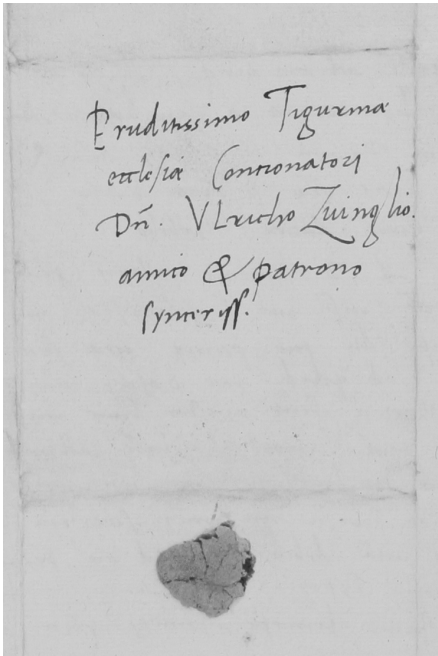 Eruditissimo Tigurinæ
ecclesiæ Concionatori
Dñ. VLricho Zuinglio.
amico & patrono
synceriss.